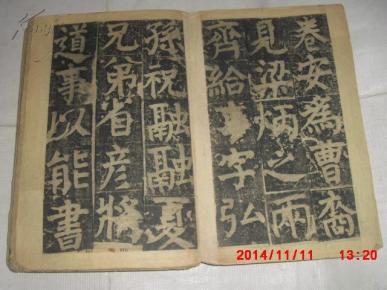 卷安為曹裔
見梁炳之兩
齊給事字弘
孫祝融融夏
兄弟省彦將
道事以能書
2014/11/11 13:20